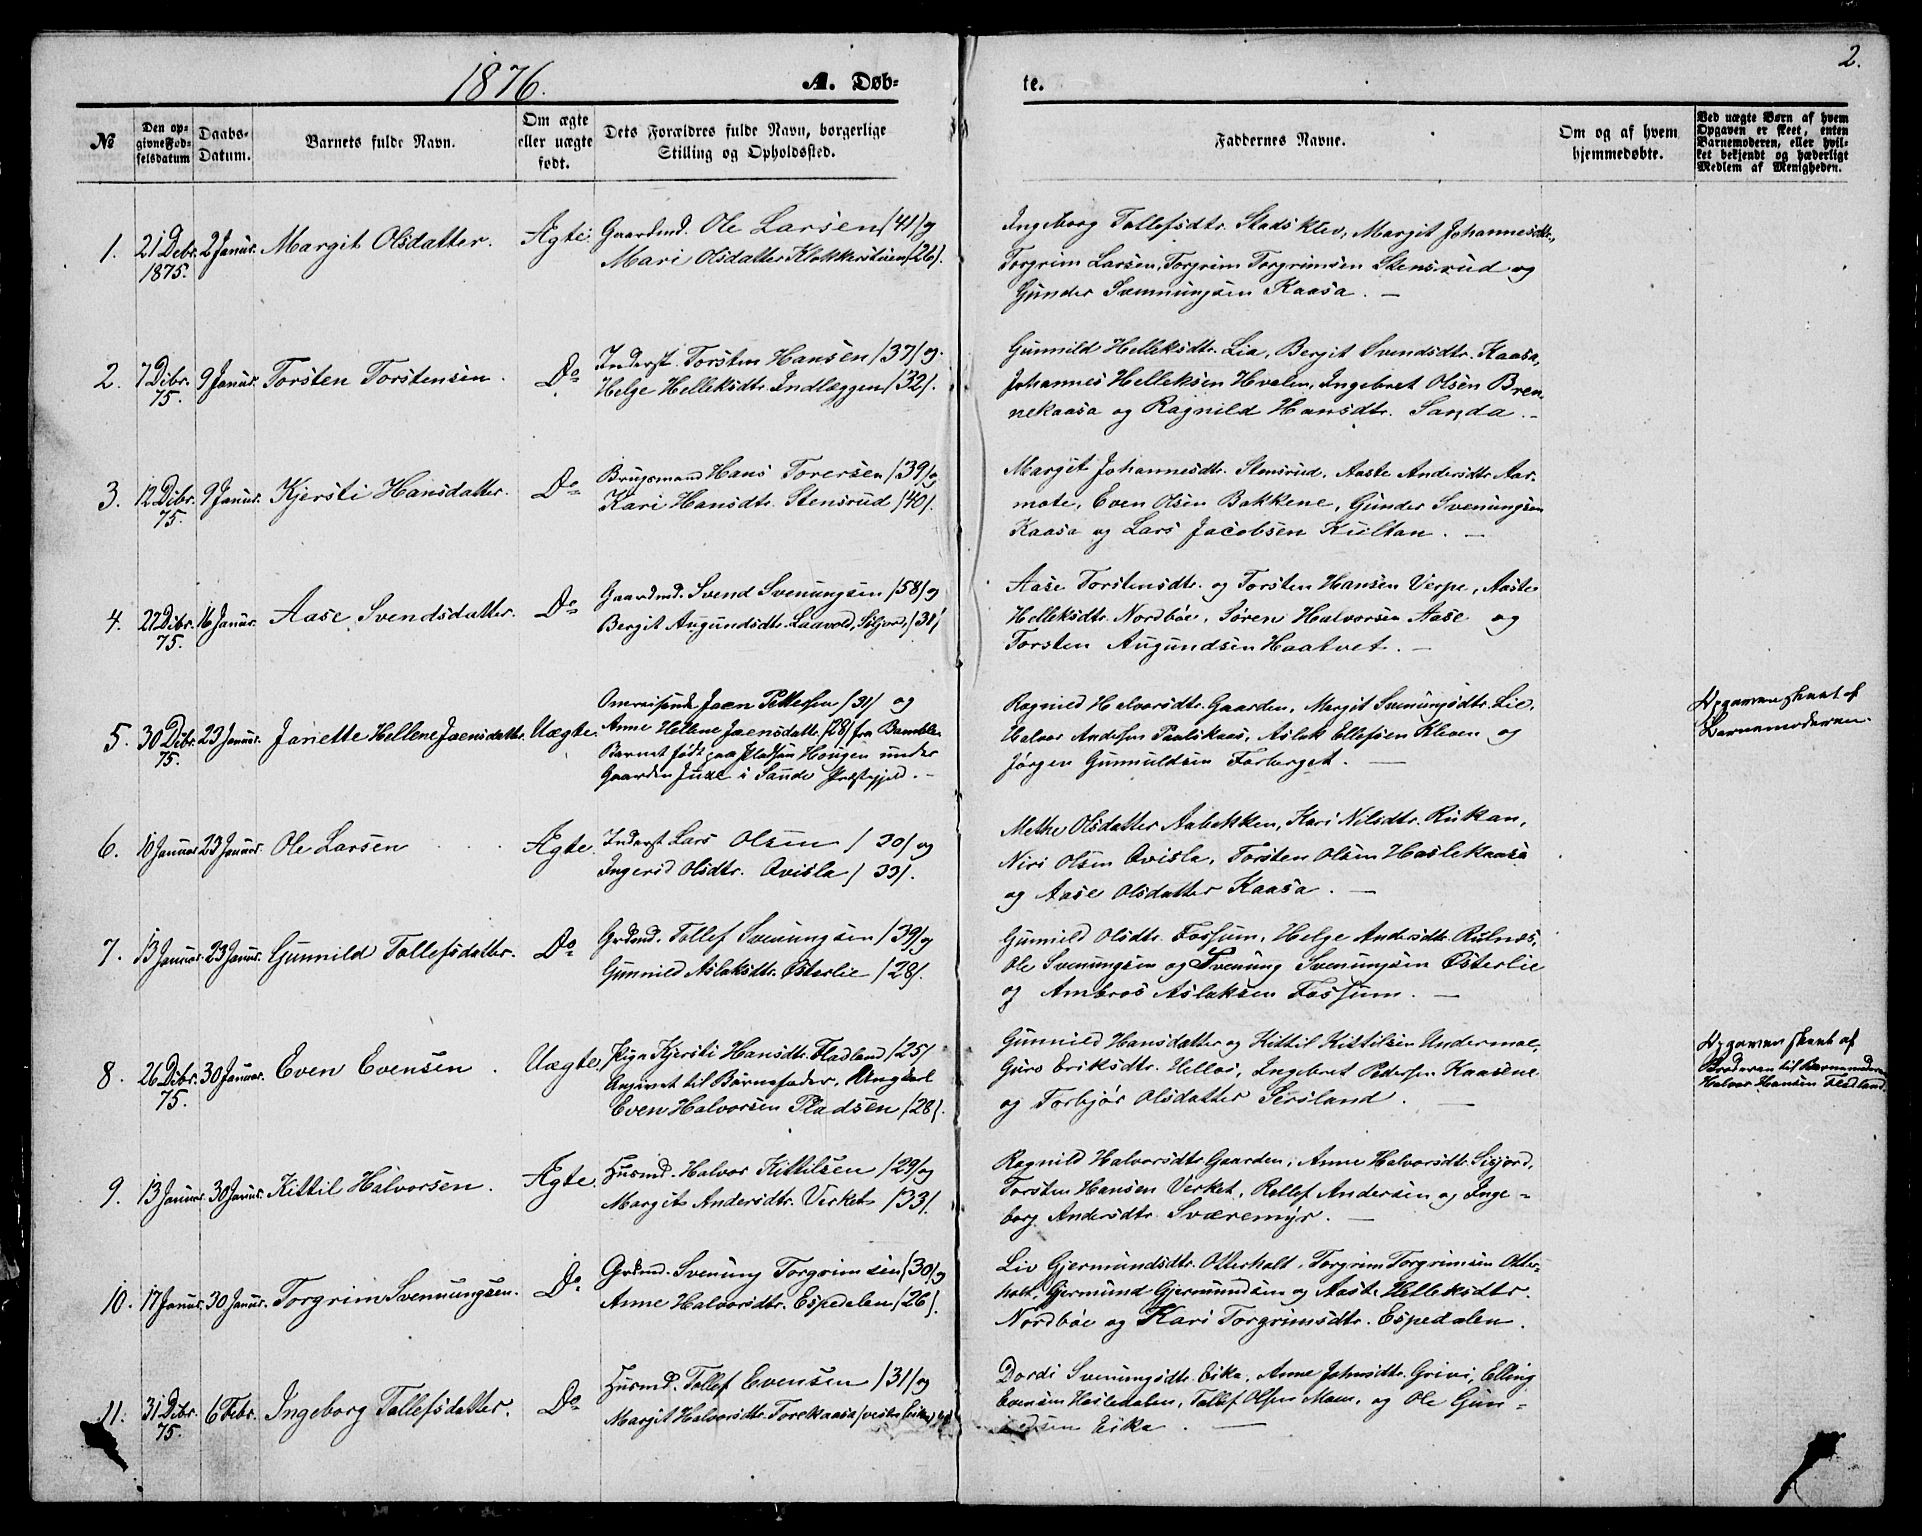 2.
1876.
A. Døb-
te.
№
Den op-
givne Fød-
selsdatum
Daabs-
Datum.
Barnets fulde Navn.
Om ægte
eller uægte
født.
Dets Forældres fulde Navn, borgerlige
Stilling og Opholdssted.
Faddernes Navne.
Om og af hvem
hjemmedøbte.
Ved uægte Børn af hvem
Opgaven er skeet, enten
Barnemoderen, eller hvil-
ket bekjendt og hæderligt
Medlem af Menigheden.
1. 21 Debr. 1875. 2 Januar. Margit Olsdatter. Ægte
Gaardmd. Ole Larsen /41/ og
Mari Olsdatter Klokkerstuen /26/.
Ingeborg Tollefsdtr. Stadsklev, Margit Johannesdtr.,
Torgrim Larsen, Torgrim Torgrimsen Stensrud og
Gunder Svennungsen Kaasa. —
2. 7 Debr. 75. 9 Januar. Torsten Torstensen. Do
Inderst. Torsten Hansen /37/ og
Helge Helleksdtr. Indlæggen /32/.
Gunnild Helleksdtr. Lia, Bergit Svendsdtr. Kaasa,
Johannes Helleksen Hvalen, Ingebret Olsen Bren-
nekaasa og Ragnild Hansdtr. Sanda. -
3. 12 Debr. 75. 9 Januar. Kjersti Hansdatter. Do
Brugsmand Hans Torersen /39/ og
Kari Hansdtr. Stensrud /40/.
Margit Johannesdtr. Stensrud, Aaste Andersdtr. Aar-
mote, Even Olsen Bakkene, Gunder Svenungsen
Kaasa og Lars Jacobsen Kultan. —
4. 27 Debr. 75. 16 Januar. Aase Svendsdatter. Do
Gaardmd. Svend Svenungsen /58/ og
Bergit Augundsdtr. Laavold, Siljord, /38/
Aase Torstensdtr. og Torsten Hansen Verpe, Aaste
Helleksdtr. Nordbøe, Søren Halvorsen Aase og
Torsten Augundsen Haatvet. —
5. 30 Debr. 75. 23 Januar. Jariette Hellene Jaensdatter. Uægte.
Omreisende Jaen Pettersen /31/ og
Anne Hellene Jaensdatter /28/ fra Bamble
Barnet født paa Pladsen Hougen under
Gaarden Juve i Saude Præstegjeld. -
Ragnild Halvorsdtr. Gaarden, Margit Svenungsdtr. Lie,
Halvor Andersen Paulskaas, Aslak Ellefsen Kleven og
Jørgen Gunnuldsen Forberget. —
Opgaven skeet af
Barnemoderen.
6. 10 Januar 23 Januar. Ole Larsen Ægte.
Inderst Lars Olsen /30/ og
Ingerid Olsdtr. Qvisla /33/.
Methe Olsdatter Aabakken, Kari Nilsdtr. Rukan,
Niri Olsen Qvisla, Torsten Olsen Haslekaasa
og Aase Olsdatter Kaasa. —
7. 13 Januar 23 Januar. Gunnild Tollefsdatter. Do
Grdmd. Tollef Svenungsen /39/ og
Gunnild Aslaksdtr. Østerlie /28/.
Gunnild Olsdtr. Fossum, Helge Andersdtr. Rulnes,
Ole Svenungsen og Svenung Svenungsen Østerlie
og Ambros Aslaksen Fossum. —
8. 26 Debr. 75. 30 Januar. Even Evensen. Uægte.
Pige Kjersti Hansdtr. Fladland /25/
Angivet til Barnefader, Ungkarl
Even Halvorsen Pladsen /28/.
Gunnild Hansdatter og Kittil Kittilsen Undermoe,
Guro Eriksdtr. Hellos, Ingebret Pedersen Kaasene
og Torbjør Olsdatter Sersland. —
Opgaven skeet af
Broderen til Barnemoderen
Halvor Hansen Fladland.
9. 13 Januar. 30 Januar. Kittil Halvorsen. Ægte.
Husmd. Halvor Kittilsen /29/ og
Margit Andersdtr. Verket /33/.
Ragnild Halvorsdtr. Gaarden, Anne Halvorsdtr. Sisjord,
Torsten Hansen Verket, Rollef Andersen og Inge-
borg Andersdtr. Sværemyr. —
10. 17 Januar. 30 Januar. Torgrim Svennungsen. Do
Grdmd. Svenung Torgrimsen /30/ og
Anne Halvorsdtr. Espedalen /26/.
Liv Gjermundsdtr. Otterholt, Torgrim Torgrimsen Otter-
holt, Gjermund Gjermundsen og Aaste Helleksdtr.
Nordbøe og Kari Torgrimsdtr. Espedalen.
11. 31 Debr. 75. 6 Febr. Ingeborg Tollefsdatter. Do
Husmd. Tollef Evensen /31/ og
Margit Halvorsdtr. Torekaasa
Dordi Svenungsdtr. Eika, Anne Johnsdtr. Grivi, Elling
Evensen Hasledalen, Tollef Olsen Moen, og Ole Gun-
Eika. —